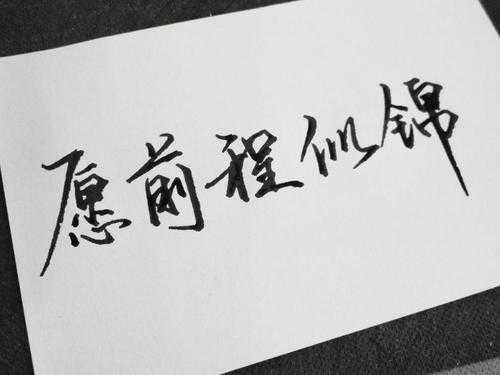 愿前程似锦